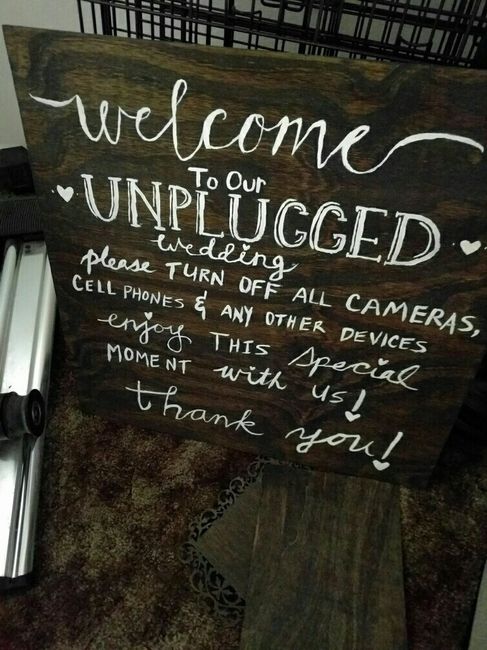 welcome
To Our
UNPLUGGED
wedding
please TURN OFF ALL CAMERAS,
CELL PHONES & ANY OTHER DEVICES
enjoy THIS special
MOMENT with us!
thank you!